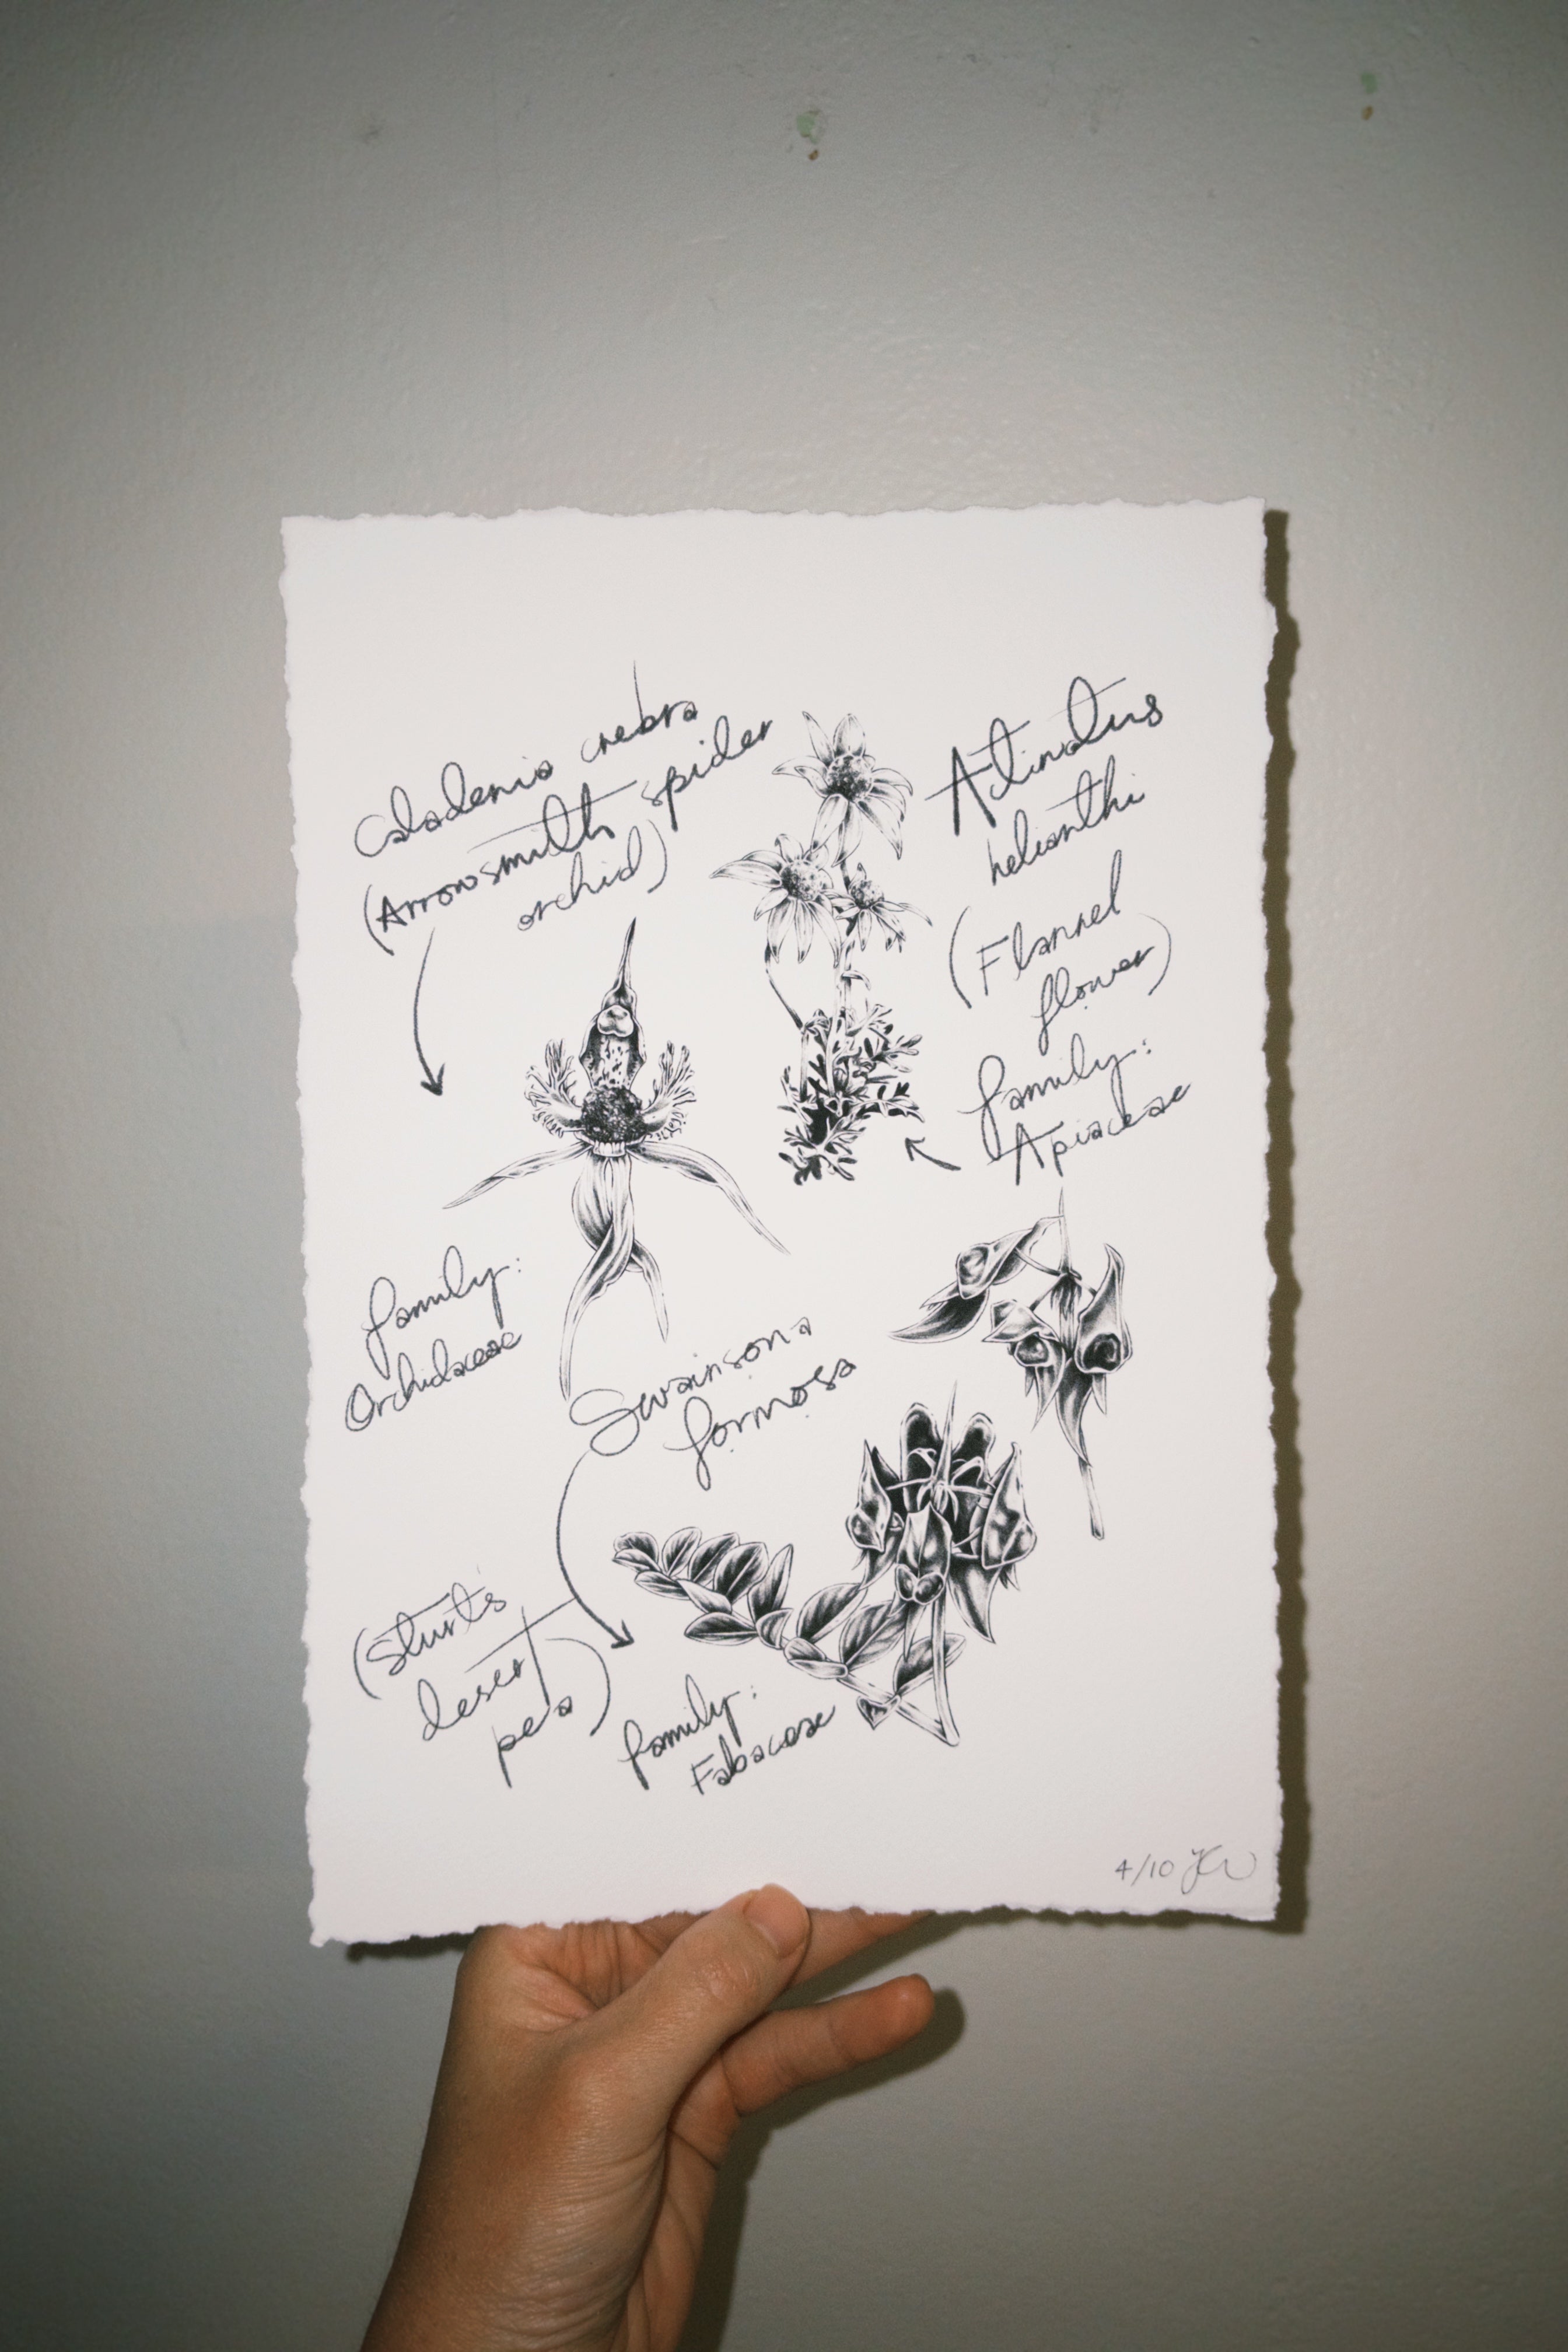 Caladenia crebra
(Arrowsmith spider
orchid)
Actinotus
helianthi
(Flannel
flower)
family:
Apiaceae
family:
Orchidaceae
Swainsona
formosa
(Sturt's
desert
pea)
family:
Fabaceae
4/10